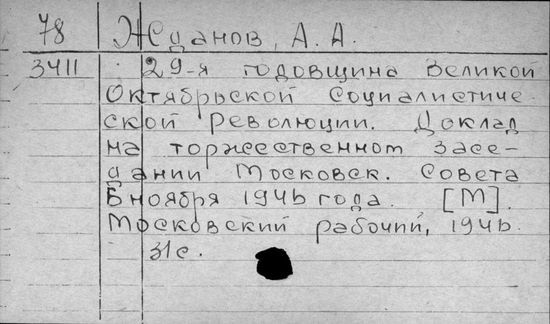 78 Жданов, А. А.
3411 29-я годовщина Великой
Октябрьской Социалистиче-
ской революции. Доклад
на торжественном засе-
дании Московск. Совета
6 ноября 1946 года. [М].
Московский рабочий, 1946.
31с.